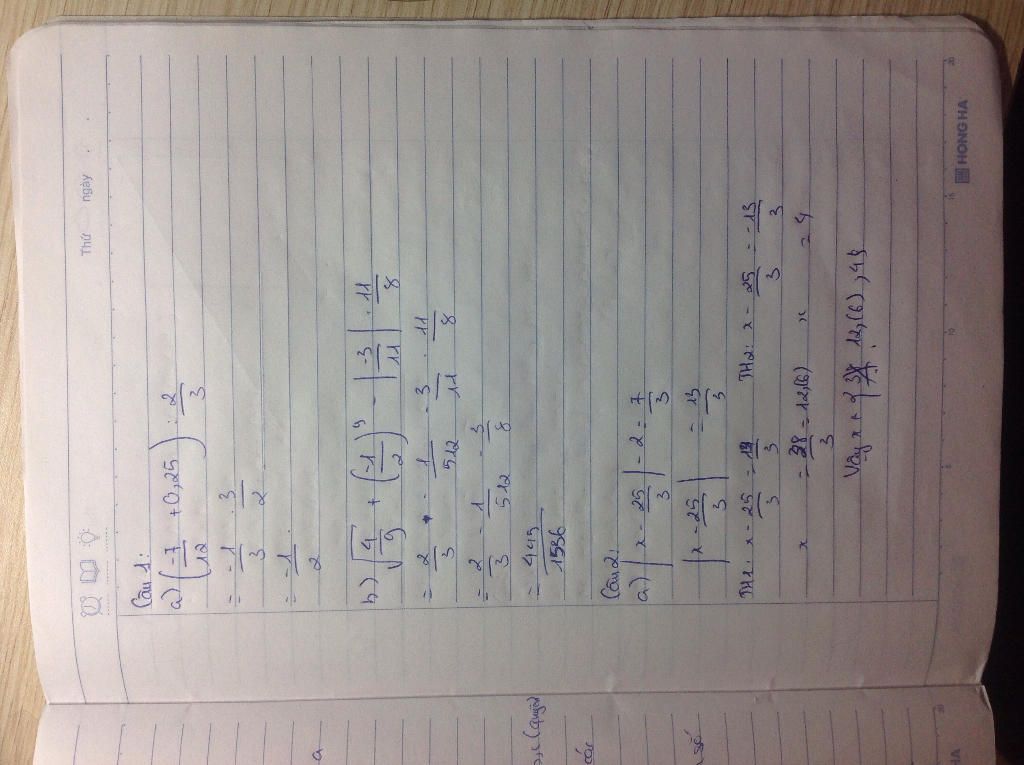 Thứ ngày
Câu 1:
a) (-7/12 + 0,25) : 2/3
= -1/3 . 3/2
= -1/2
b) √(4/9) + (-1/2)⁹ - |-3/11| . 11/8
= 2/3 - 1/512 - 3/11 . 11/8
= 2/3 - 1/512 - 3/8
= 445/1536
Câu 2:
a) |x - 25/3| - 2 = 7/3
|x - 25/3| = 13/3
TH1: x - 25/3 = 13/3 TH2: x - 25/3 = -13/3
x = 38/3 = 12,(6) x = 4
Vậy x ∈ { 12,(6) ; 4 }
HONG HA
các
số